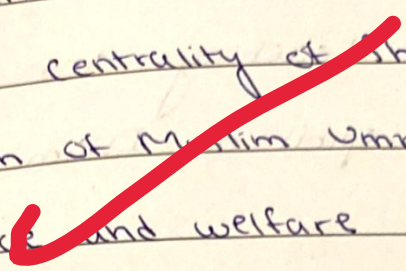 centrality of Sh
n of Muslim Umm
and welfare